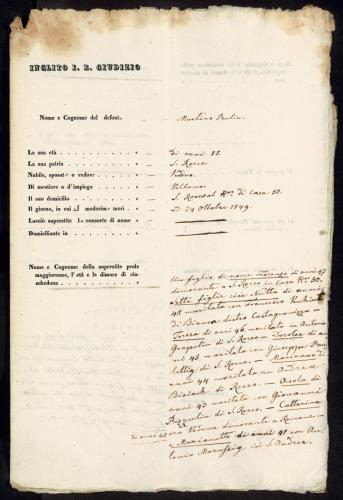 INCLITO I. R. GIUDIZIO
Nome e Cognome del defont. Martino Paulin
La sua età di anni 85.
La sua patria S. Rocco.
Nubile, sposato o vedovo Vedovo.
Di mestiere o d'impiego Villano.
Il suo domicilio S. Rocco al No. di Casa 50.
Il giorno, in cui il medesimo morì D. 24 Ottobre 1849.
Lasciò superstite La consorte di nome
Domiciliante in
Nome e Cognome della superstite prole
maggiorenne, l'età e la dimora di cia-
scheduna
Un figlio di nome Lorenzo d'anni 47
dimorante a S. Rocco in Casa No. 50.
Sette figlie cioè d'anni
48 maritata con Francesco
di Bianca dietro Castagnavizza
Teresa di anni 46, maritata in Antonio
di S. Rocco
ni 45, maritata con Giuseppe Pau-
di S. Rocco. Marianna di
anni 44 maritata in Andrea
di S. Rocco. Orsola di
anni 43 maritata con Giovanni
di S. Rocco. Catterina
di anni 42 ora Vedova dimorante a
Marianetta di anni 41 con An-
tonio Marussig in S. Andrea.